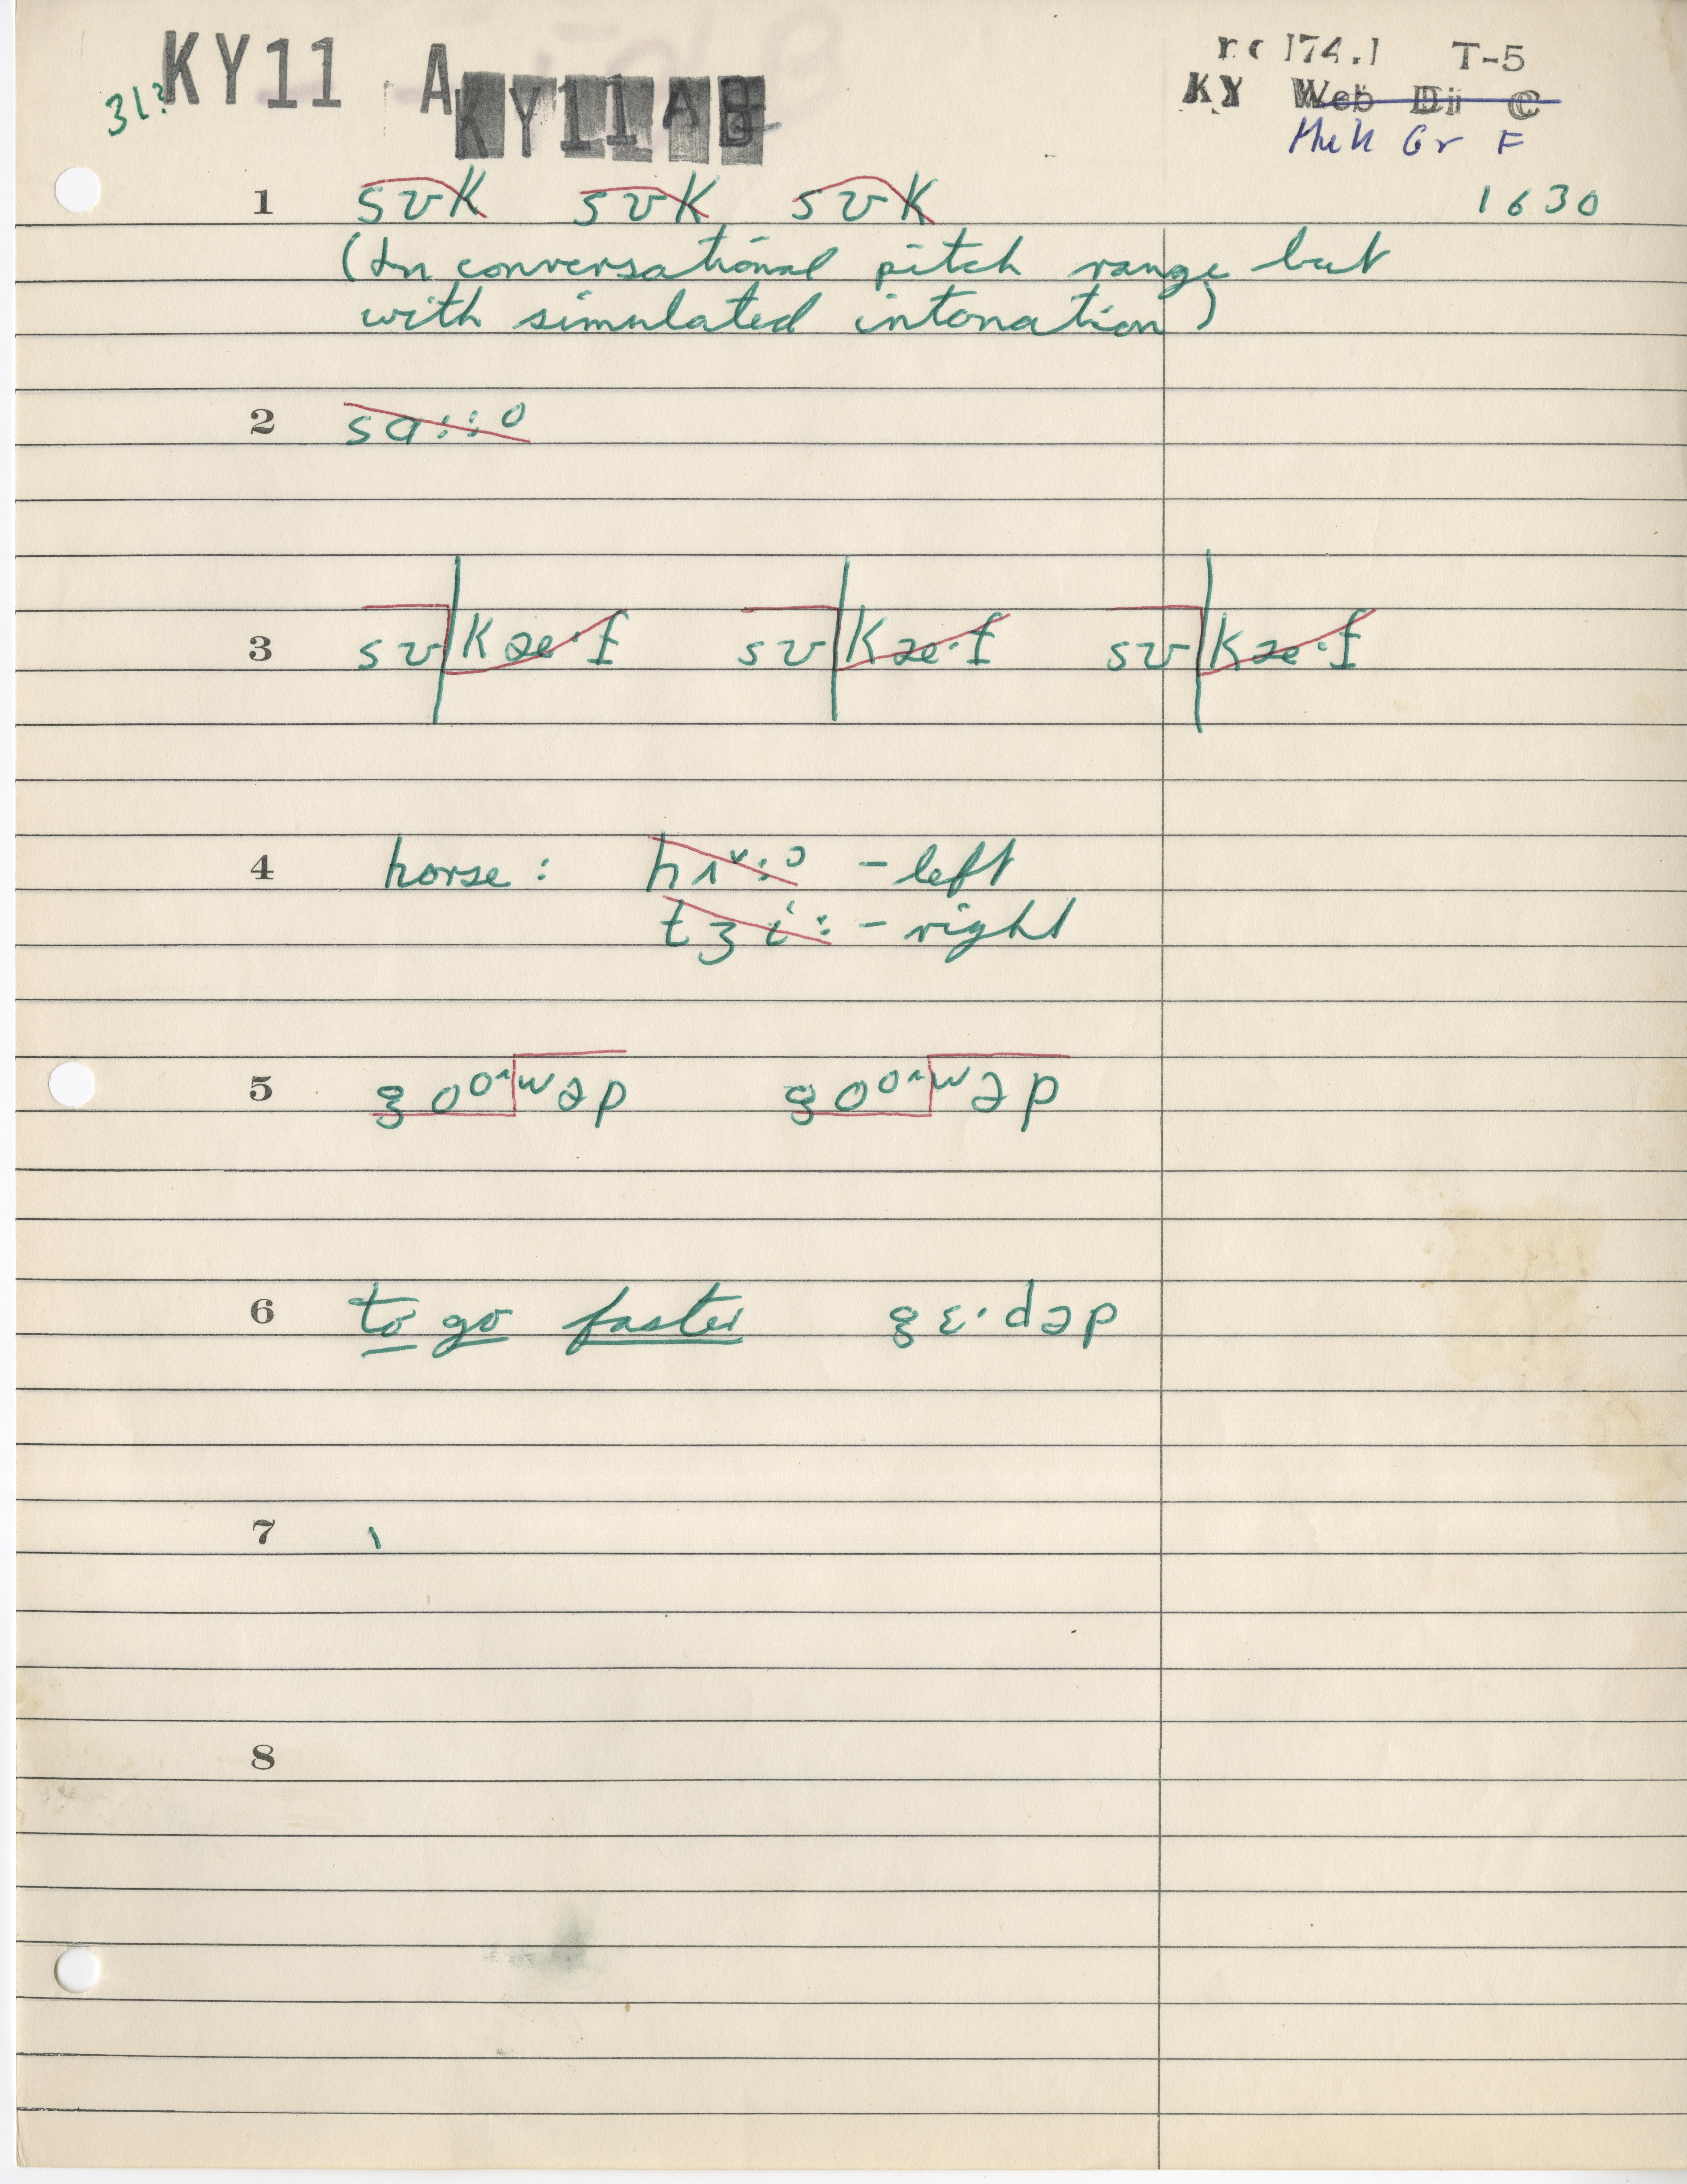 KY11 A KY11A
31?
174.1 T-5
KY Web Di C
Muh Gr F
1630
1 sʊk sʊk sʊk
(In conversational pitch range but
with simulated intonation)
2 sɑ::o
3 sʊ|kæ·f sʊ|kæ·f sʊ|kæ·f
4 horse: – left
– right
5
6 to go faster gɛ·dəp
7
8